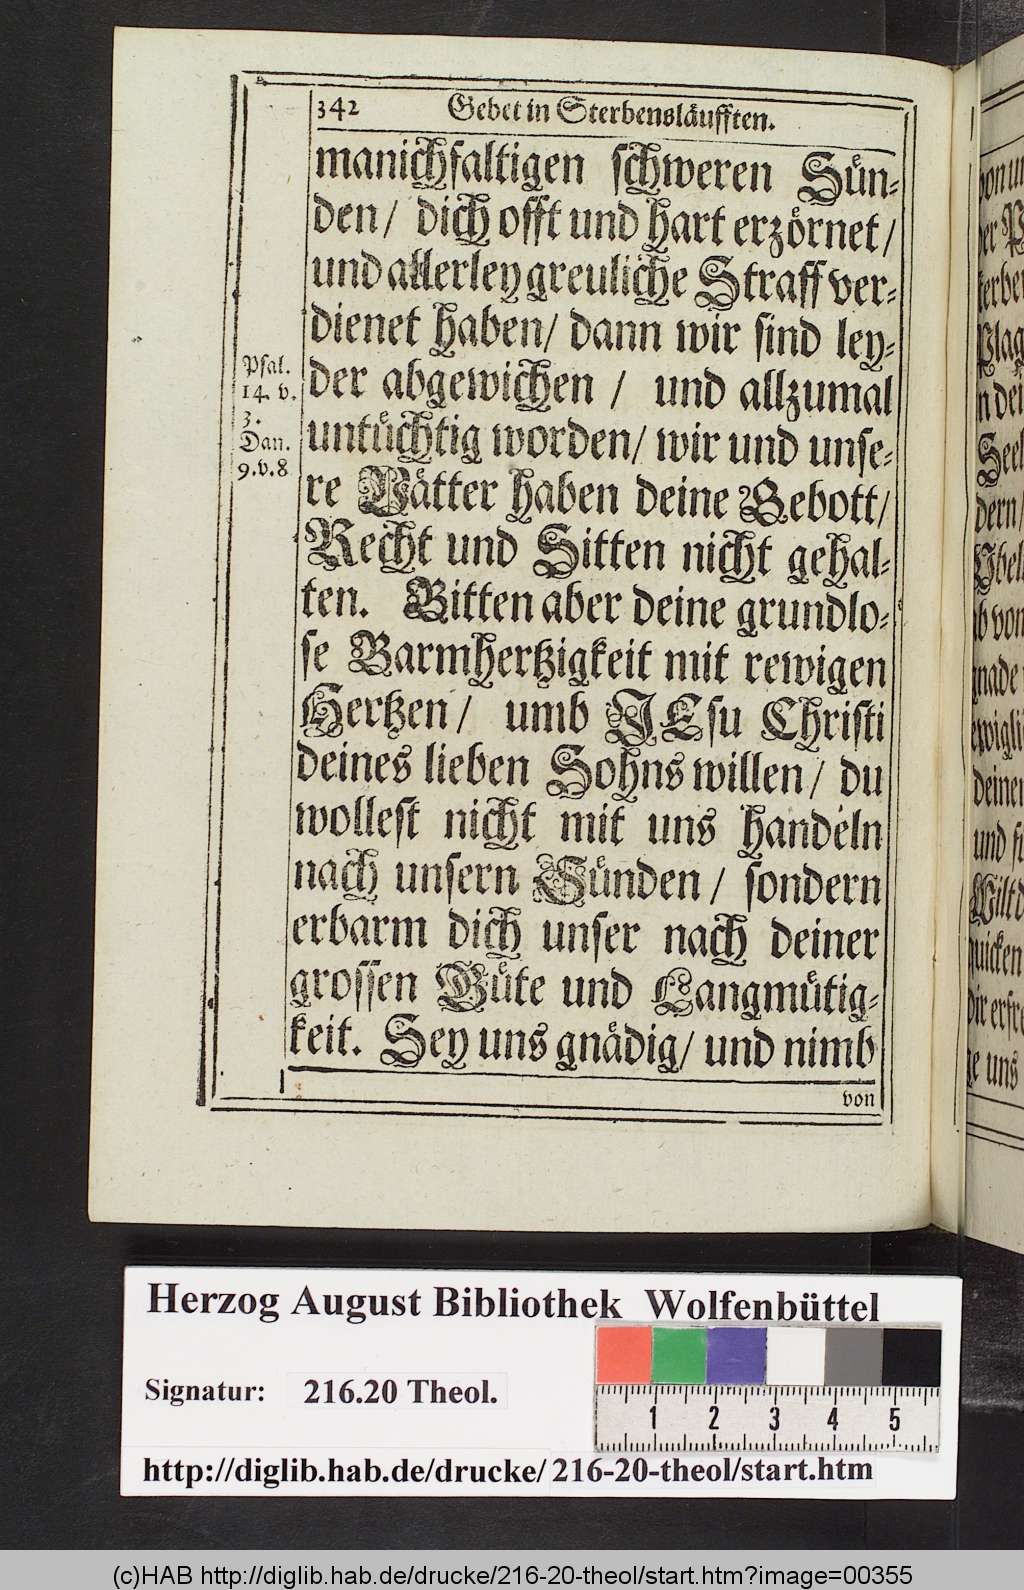 342 Gebet in Sterbensläufften.
manichfaltigen schweren Sün-
den/ dich offt und hart erzörnet/
und allerley greuliche Straff ver-
dienet haben/ dann wir sind ley-
der abgewichen / und allzumal
untüchtig worden/ wir und unse-
re Vätter haben deine Gebott/
Recht und Sitten nicht gehal-
ten. Bitten aber deine grundlo-
se Barmhertzigkeit mit rewigen
Hertzen / umb JEsu Christi
deines lieben Sohns willen / du
wollest nicht mit uns handeln
nach unsern Sünden / sondern
erbarm dich unser nach deiner
grossen Güte und Langmütig-
keit. Sey uns gnädig/ und nimb
von
Psal.
14. v.
3.
Dan.
9.v.8
von
Plag
n dei
Seel
dern/
ab von
gnade
ewigli
deiner
und
quicken
dir erfr
ge uns
Herzog August Bibliothek Wolfenbüttel
Signatur: 216.20 Theol.
1 2 3 4 5
http://diglib.hab.de/drucke/216-20-theol/start.htm
(c)HAB http://diglib.hab.de/drucke/216-20-theol/start.htm?image=00355